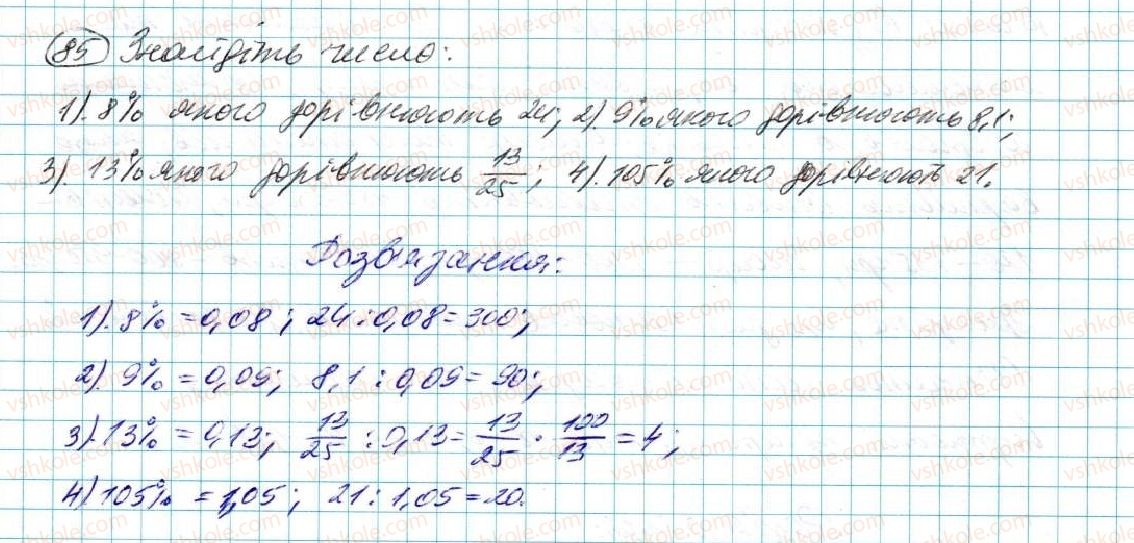 85 Знайдіть число:
1). 8% якого дорівнюють 24; 2). 9% якого дорівнюють 8,1;
3). 13% якого дорівнюють 13/25; 4). 105% якого дорівнюють 21.
Розв'язання:
1). 8% = 0,08; 24 : 0,08 = 300;
2). 9% = 0,09; 8,1 : 0,09 = 90;
3). 13% = 0,13; 13/25 : 0,13 = 13/25 · 100/13 = 4;
4) 105% = 1,05; 21 : 1,05 = 20.